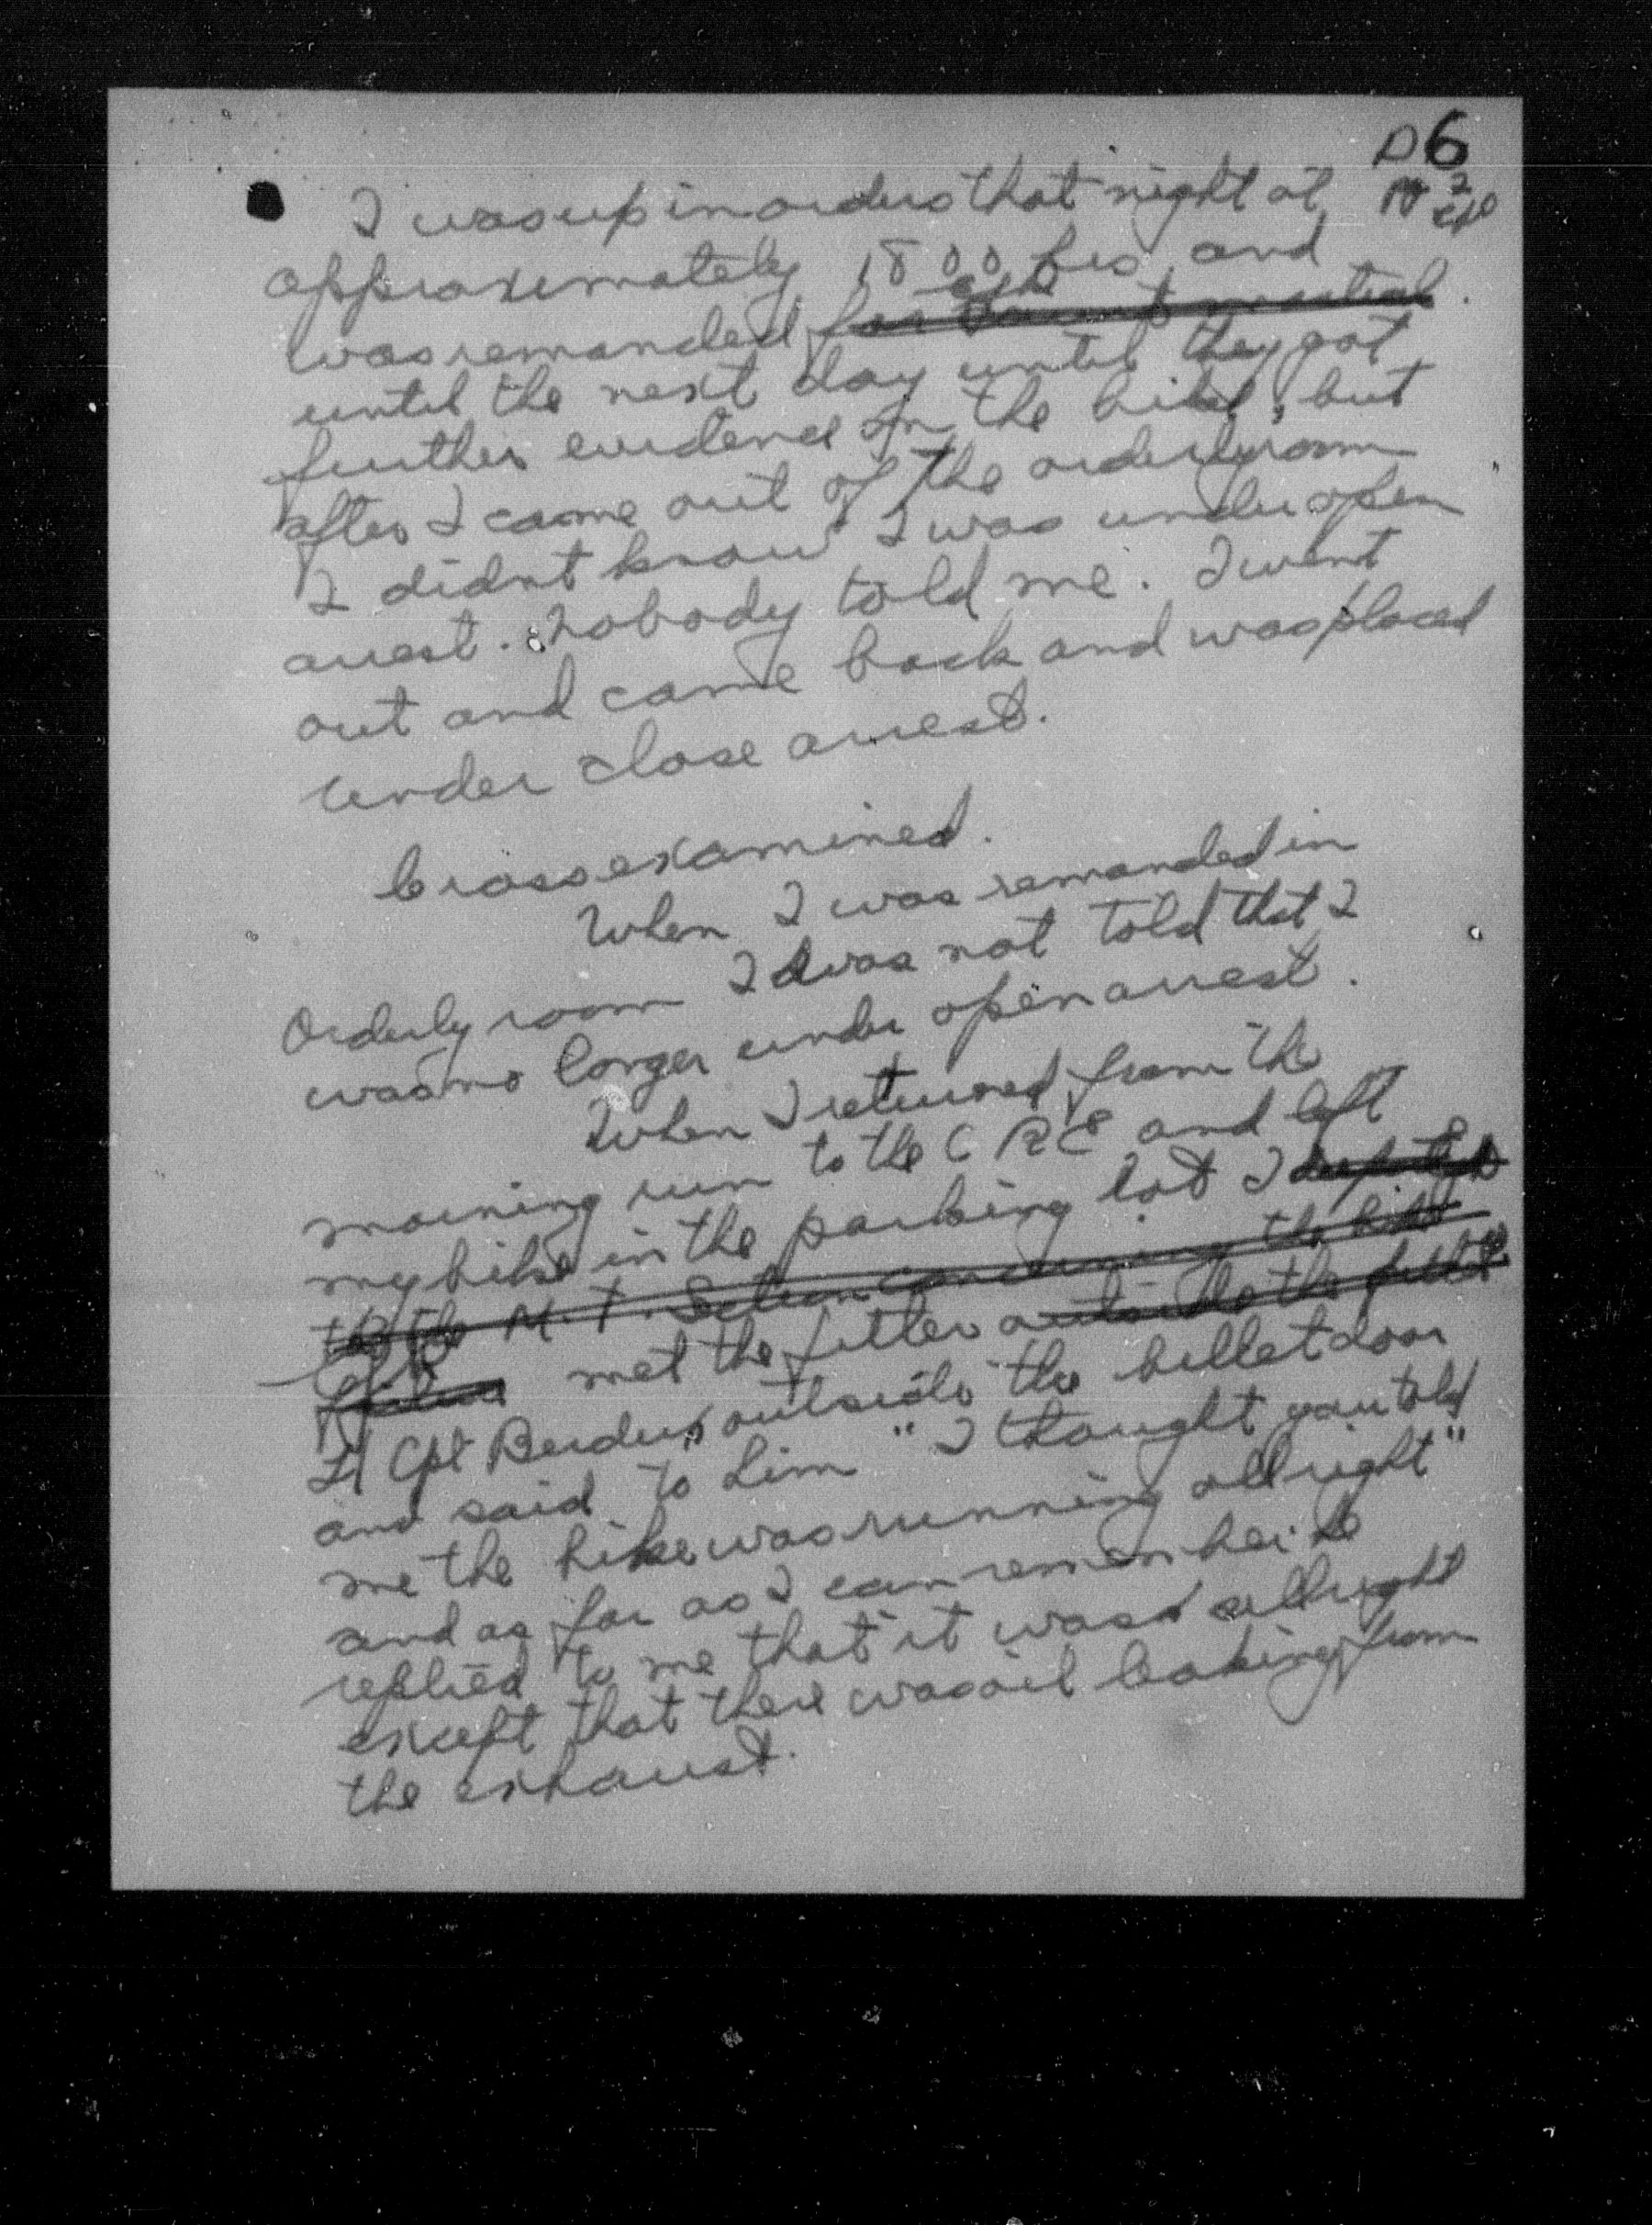 D6
I was up in orders that night at
approximately 1800 hrs and
was remanded for Court martial.
until the next day until they got
further evidence on the bike, but
after I came out of the orderly room
I didnt know I was under open
arrest. Nobody told me. I went
out and came back and was placed
under close arrest.
Cross examined.
When I was remanded in
Orderly room I was not told that I
was no longer under open arrest.
When I returned from the
morning run to the C R E and left
my bike in the parking lot I
to the M.T. Section concerning the bike
met the fitter outside the
L/Cpl outside the billet door
and said to him "I thought you told
me the bike was running all right"
and as far as I can remember he
replied to me that it was allright
except that there was oil leaking from
the exhaust.